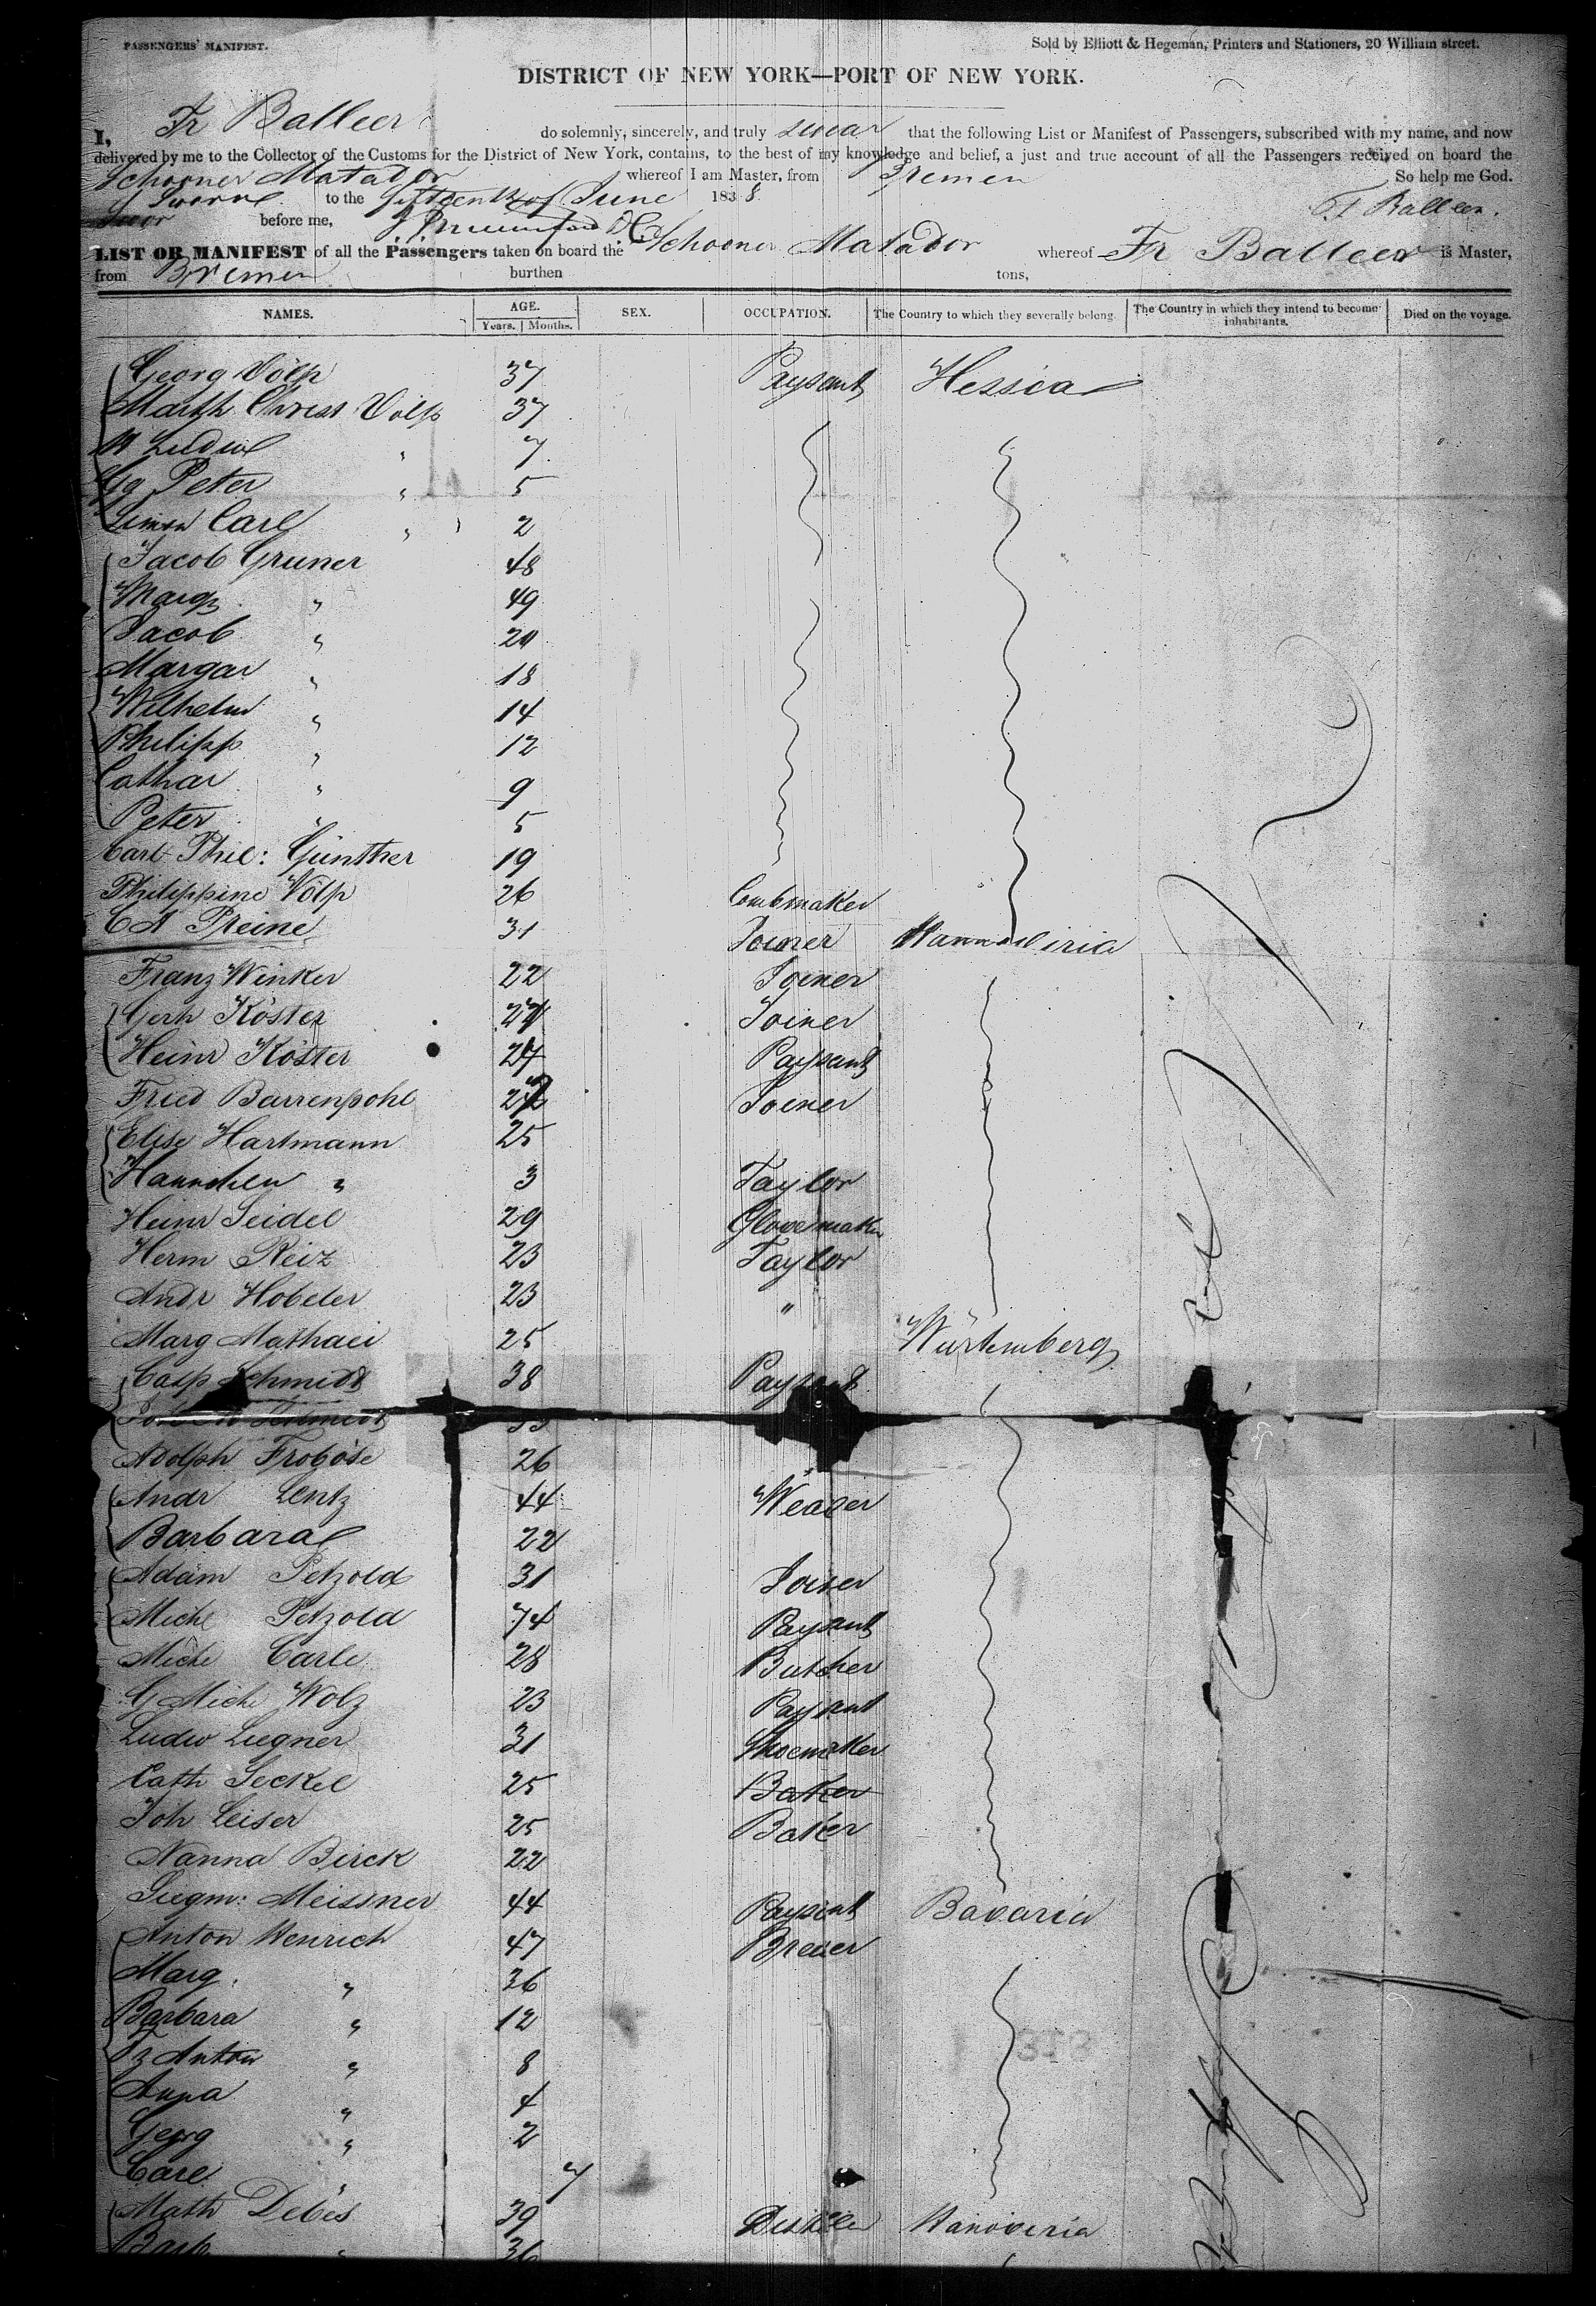 PASSENGERS' MANIFEST.
Sold by Elliott & Hegeman, Printers and Stationers, 20 William street.
DISTRICT OF NEW YORK—PORT OF NEW YORK.
I, Fr Balleer do solemnly, sincerely, and truly swear that the following List or Manifest of Passengers, subscribed with my name, and now
delivered by me to the Collector of the Customs for the District of New York, contains, to the best of my knowledge and belief, a just and true account of all the Passengers received on board the
Schooner Matador whereof I am Master, from Bremen So help me God.
Sworne to the fifteenth of June 1838. Balleer.
before me,
LIST OR MANIFEST of all the Passengers taken on board the Schooner Matador whereof Fr Balleer is Master,
from Bremen burthen tons,
NAMES. AGE. Years. Months. SEX. OCCUPATION. The Country to which they severally belong. The Country in which they intend to become inhabitants. Died on the voyage.
Georg Völp 37 Paysant Hessia
Marth Christ Völp 37
Ludwl " 7
Gg Peter " 5
Simon Carl " 2
Jacob Gruner 48
Marg " 49
Jacob " 20
Margar " 18
Wilhelm " 14
Philipp " 12
Cathar " 9
Peter " 5
Carl Phil: Günther 19
Philippine Völp 26 Combmaker
Preine 31 Joiner Hannoviria
Franz Winker 22 Joiner
Gerh Köster Joiner
Heinr Köster Paysant
Fried Barrenpohl Joiner
Elise Hartmann 25
Hannchen " 3 Taylor
Heinr Seidel 29 Glovemaker
Herm Reiz 23 Taylor
Andr Hobeler 23 "
Marg Mathaei 25 Würtemberg
Casp Schmidt 38 Paysant
Schmidt
Adolph Froböse 26
Andr Lentz 44 Weaver
Barbara 22
Adam Petzold 31 Joiner
Mich Petzold 74 Paysant
Mich Carle 28 Butcher
G Mich Wolz 23 Paysant
Ludw Liegner 31 Shoemaker
Cath Seckel 25 Baker
Joh Leiser 25 Baker
Nanna Birck 22
Siegm: Meissner 44 Paysant Bavaria
Anton Wenrich 47 Brewer
Marg. " 36
Barbara " 12
Fz Anton " 8
Anna " 4
Georg " 2
Carl " 7
Math Debes 39 Distiller Hanoveria
Barb " 36